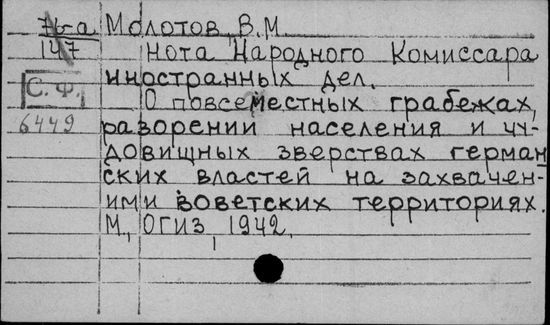 7б-а Молотов, В.М.
147 Нота Народного Комиссара
иностранных дел.
С. Ф. О повсеместных грабежах,
6449 разорении населения и чу-
довищных зверствах герман
ских властей на захвачен-
ими воветских территориях.
М., ОГИЗ, 1942.